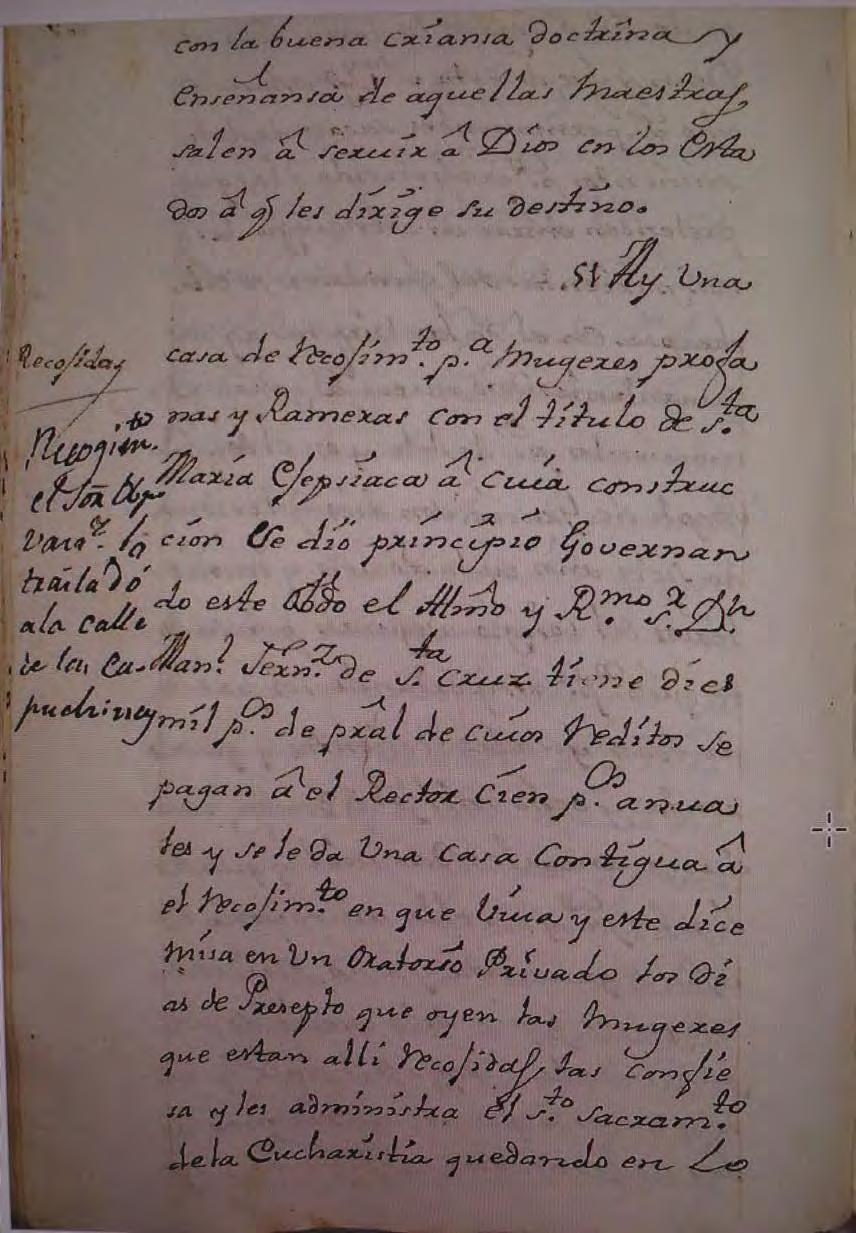 con la buena criansa doctrina y
Enseñansa de aquellas Maestras,
salen â servir â Dios en los Esta
dos â q̃ les dirige su destino.
51 Ay Una
Recosidas
casa de recosim.to p.a Mugeres profa
nas y Rameras con el titulo de S.ta
Maria Egepsiaca â cuia construc
cion se dió principio Governan
do este Obdo el Illmo y R.mo S.r Dn
Man.l Fern.z de S.ta Cruz tiene dies
mil p.os de prâl de cuios reditos se
pagan â el Rector Cien p.os anua
les y se le da Una Casa Contigua â
el recosim.to en que viva y este dice
misa en Un Oratorio Privado los di
as de Presepto que oyen las Mugeres
que estan alli recosidas, las confie
sa y les administra el S.to Sacram.to
de la Eucharistia quedando en Lo
el Sor
lo
trasladó
a la calle
de las Ca-
puchinas